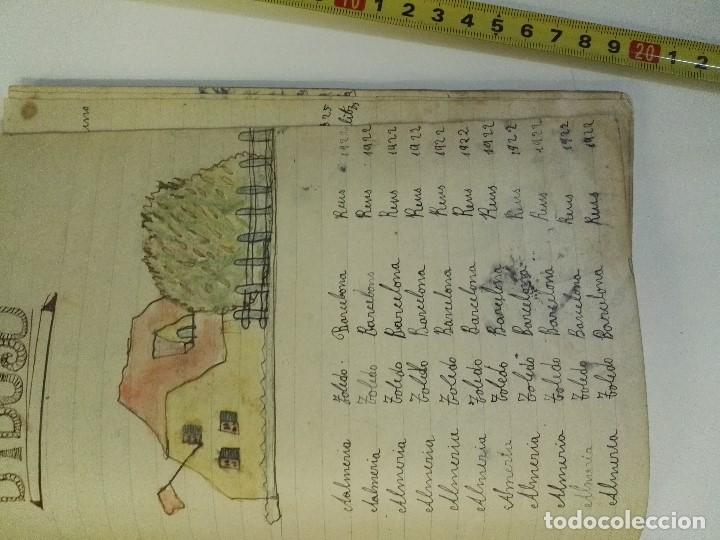 DIBUJO
Almeria Toledo: Barcelona Reus 1922
Almeria Toledo Barcelona Reus 1922
Almeria Toledo Barcelona Reus 1922
Almeria Toledo Barcelona Reus 1922
Almeria Toledo Barcelona Reus 1922
Almeria Toledo Barcelona Reus 1922
Ameria Toledo Barcelona Reus 1922
Almeria Toledo Barcelona Reus 1922
Almeria Toledo Barcelona Reus 1922
Almeria Toledo Barcelona Reus 1922
Almeria Toledo Barcelona Reus 1922
10 1 2 3 4 5 6 7 8 9 20 1 2
todocoleccion.net